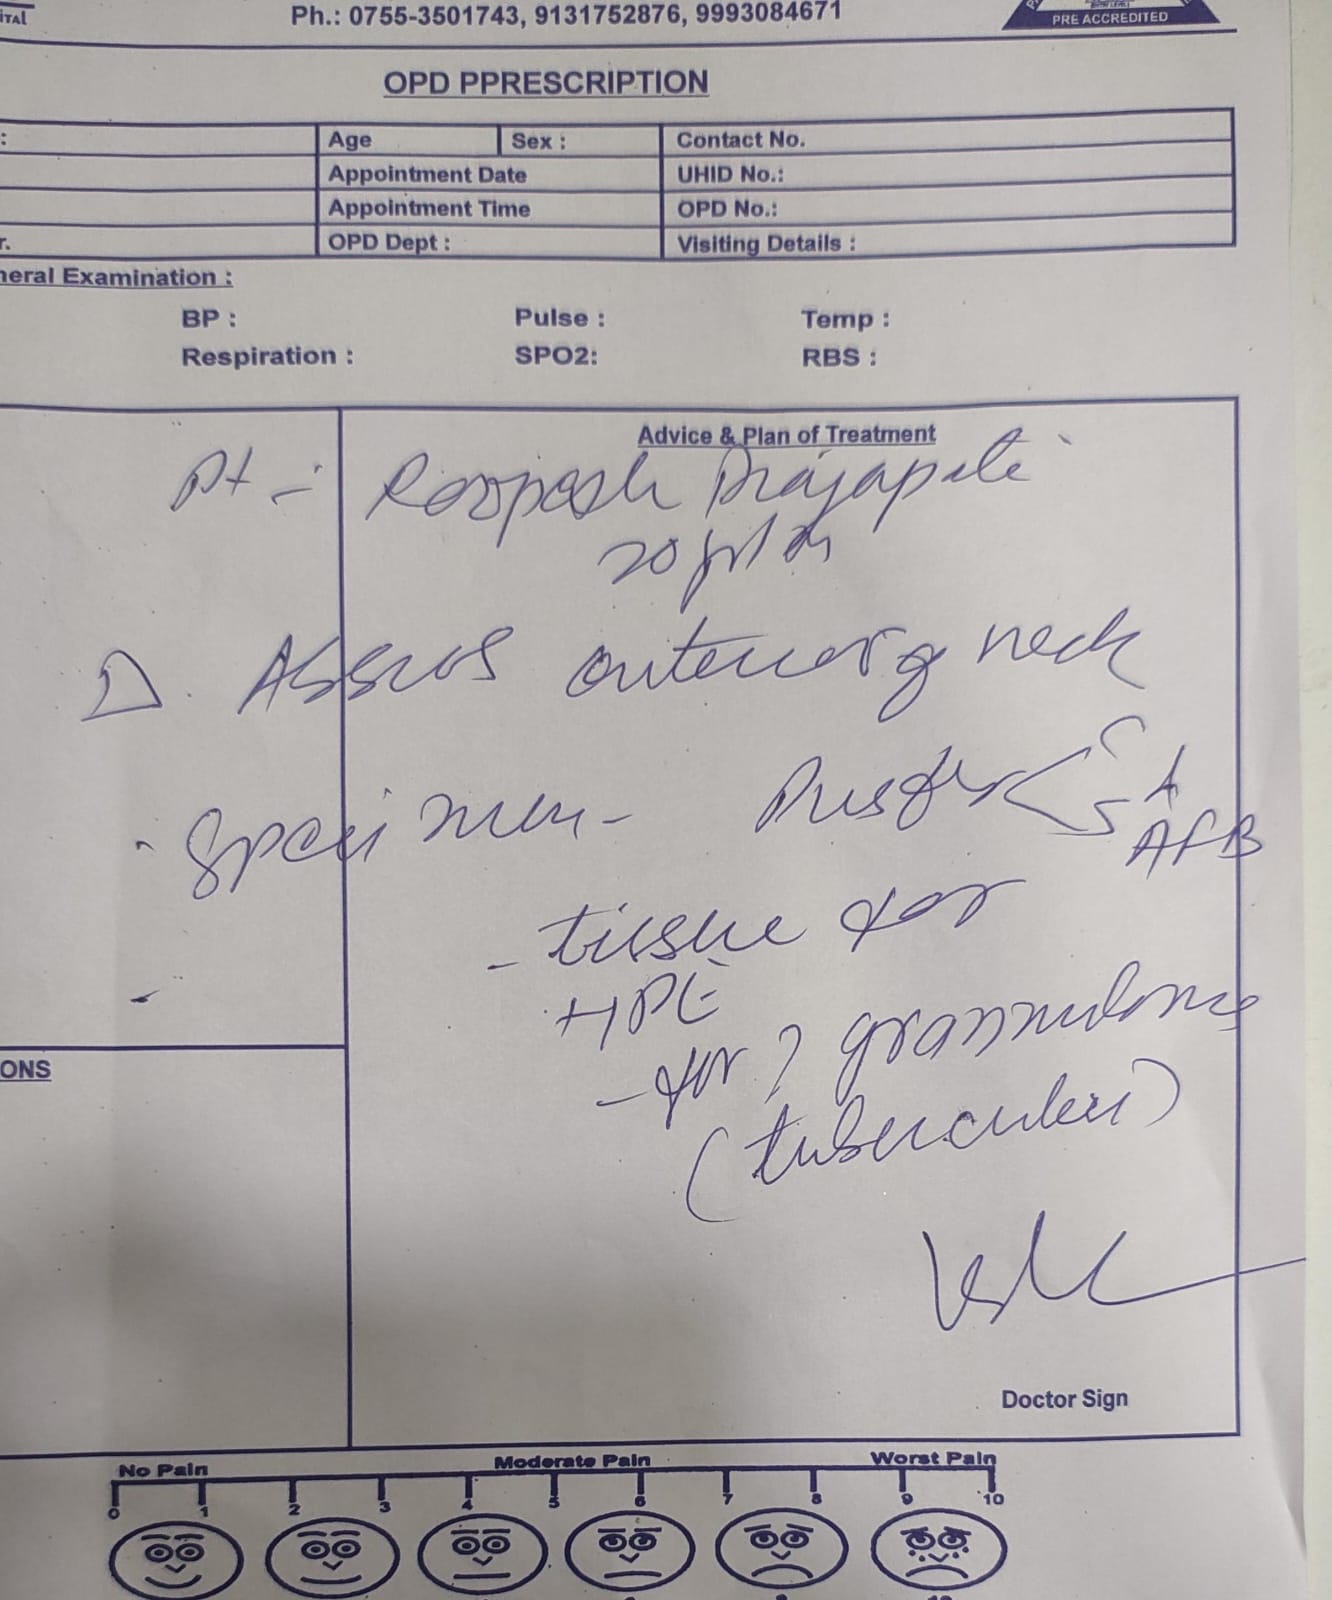 ITAL
Ph.: 0755-3501743, 9131752876, 9993084671
PRE ACCREDITED
OPD PPRESCRIPTION
: Age Sex : Contact No.
Appointment Date UHID No.:
Appointment Time OPD No.:
r. OPD Dept : Visiting Details :
neral Examination :
BP : Pulse : Temp :
Respiration : SPO2: RBS :
Advice & Plan of Treatment
Pt - Prajapati
20
neck
Specimen - Pus for C
S
AFB
- tissue for
HPE
- for ? 
(
ONS
Doctor Sign
No Pain Moderate Pain Worst Pain
0 1 2 3 4 5 6 7 8 9 10